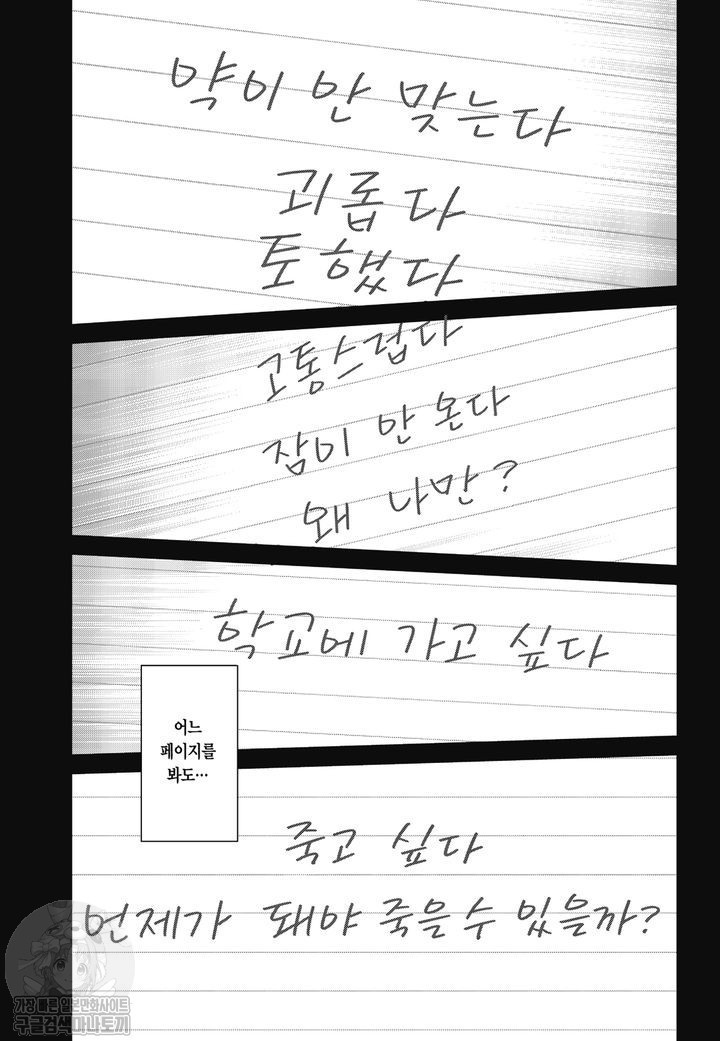 약이 안 맞는다
괴롭다
토했다
고통스럽다
잠이 안 온다
왜 나만?
학교에 가고 싶다
어느
페이지를
봐도…
죽고 싶다
언제가 돼야 죽을 수 있을까?
가장 빠른 일본만화사이트
구글검색마나토끼